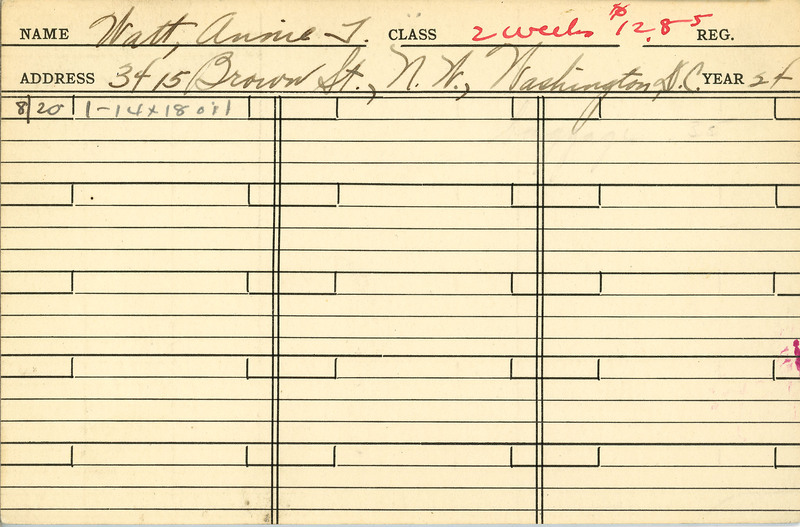 NAME Watt, Annie T. CLASS 2 weeks $12.85 REG.
ADDRESS 3415 Brown St., N. W., Washington, D.C. YEAR 24
8/20 1-14x18 oil